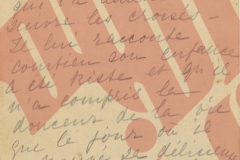 qui l'a
suivre les croisés -
Il lui raconte
combien son enfance
a été triste et qu'il
n'a compris la
douceur de la vie
que le jour où il